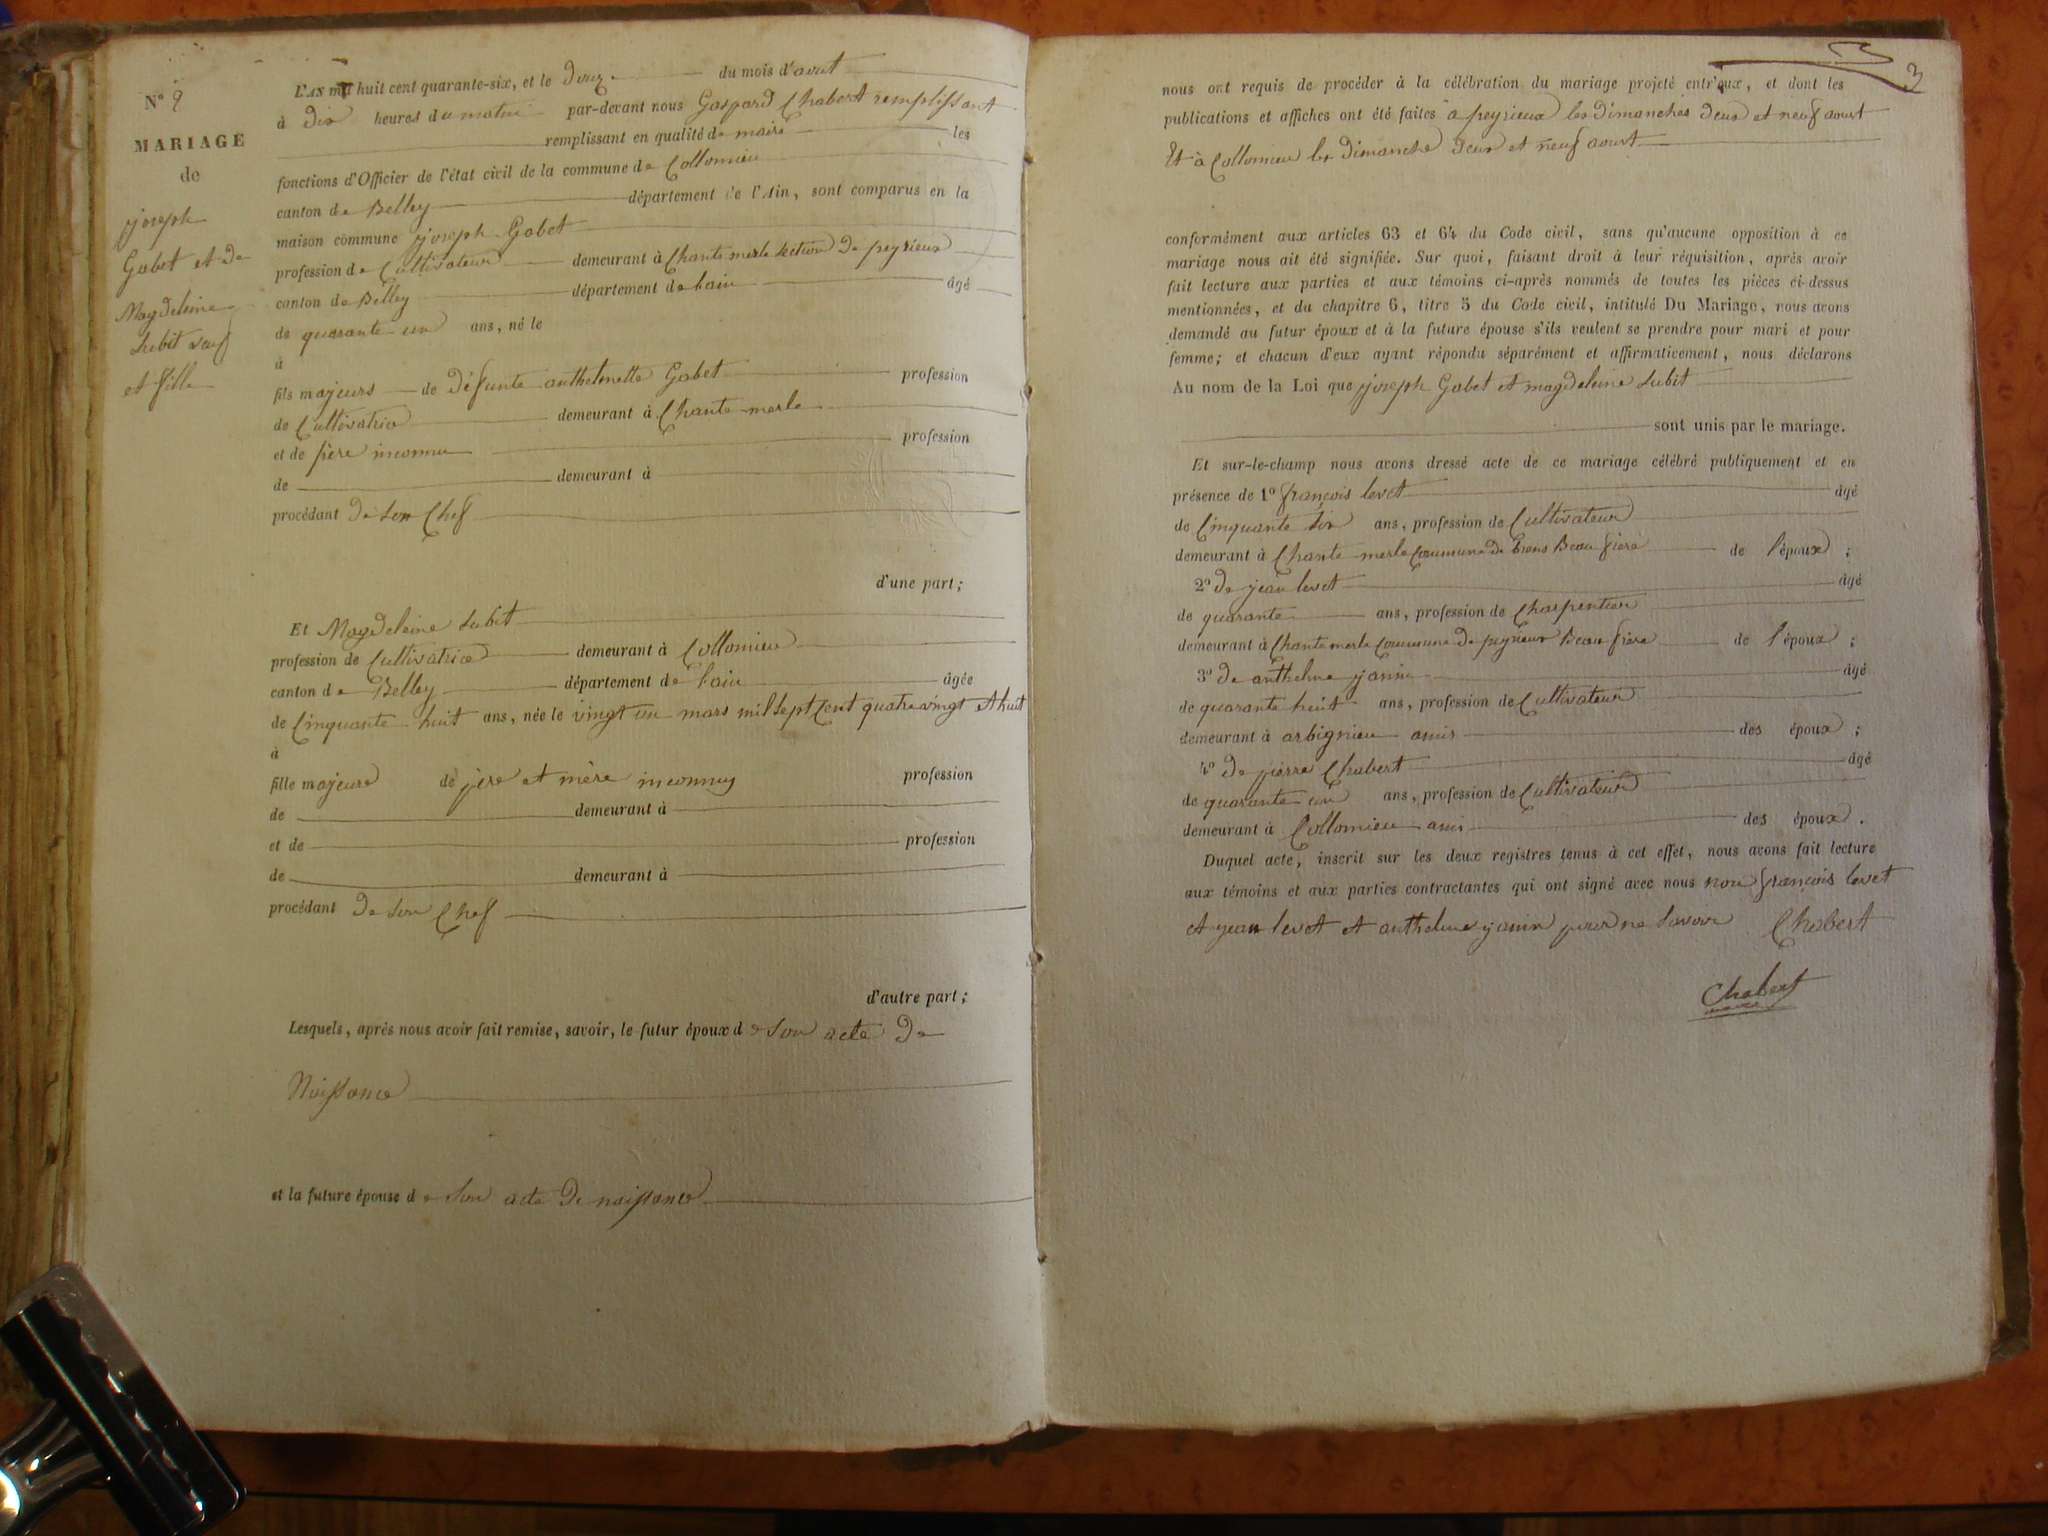 N° 2
MARIAGE
de
joseph
Gabet et de
Magdeleine
Subit veuf
et fille
L'AN mil huit cent quarante-six, et le douze du mois d'aout
à dix heures du matin par-devant nous Gaspard Chabert remplissant
remplissant en qualité de maire les
fonctions d'Officier de l'état civil de la commune de Collomieu
canton de Belley département de l'Ain, sont comparus en la
maison commune joseph Gabet
profession de Cultivateur demeurant à Chantemerle section de peyrieux
canton de Belley département de lain âgé
de quarante un ans, né le
à
fils majeurs de défunte anthelmette Gabet profession
de Cultivatrice demeurant à Chante merle
et de père inconnu profession
de demeurant à
procédant de son Chef
d'une part;
Et Magdeleine Subit
profession de Cultivatrice demeurant à Collomieu
canton de Belley département de lain âgée
de Cinquante huit ans, née le vingt un mars mil sept Cent quatre vingt et huit
à
fille majeure de père et mère inconnus profession
de demeurant à
et de profession
de demeurant à
procédant de son Chef
d'autre part;
Lesquels, après nous avoir fait remise, savoir, le futur époux de son acte de
Naissance
et la future épouse de son acte de naissance
3
nous ont requis de procéder à la célébration du mariage projeté entr'eux, et dont les
publications et affiches ont été faites à peyrieux les dimanches deux et neuf aout
Et à Collomieu les dimanche deux et neuf aout
conformément aux articles 63 et 64 du Code civil, sans qu'aucune opposition à ce
mariage nous ait été signifiée. Sur quoi, faisant droit à leur réquisition, après avoir
fait lecture aux parties et aux témoins ci-après nommés de toutes les pièces ci-dessus
mentionnées, et du chapitre 6, titre 5 du Code civil, intitulé Du Mariage, nous avons
demandé au futur époux et à la future épouse s'ils veulent se prendre pour mari et pour
femme; et chacun d'eux ayant répondu séparément et affirmativement, nous déclarons
Au nom de la Loi que joseph Gabet et magdeleine Subit
sont unis par le mariage.
Et sur-le-champ nous avons dressé acte de ce mariage célébré publiquement et en
présence de 1° françois levet âgé
de Cinquante six ans, profession de Cultivateur
demeurant à Chante merle Commune de Beau frère de l'époux;
2° de jean levet âgé
de quarante ans, profession de Charpentier
demeurant à Chantemerle Commune de peyrieux Beau frère de l'époux;
3° de anthelme janin âgé
de quarante huit ans, profession de Cultivateur
demeurant à arbignieu amis des époux;
4° de pierre Chabert âgé
de quarante un ans, profession de Cultivateur
demeurant à Collomieu amis des époux.
Duquel acte, inscrit sur les deux registres tenus à cet effet, nous avons fait lecture
aux témoins et aux parties contractantes qui ont signé avec nous non françois levet
et jean levet et anthelme janin pour ne savoir Chabert
Chabert